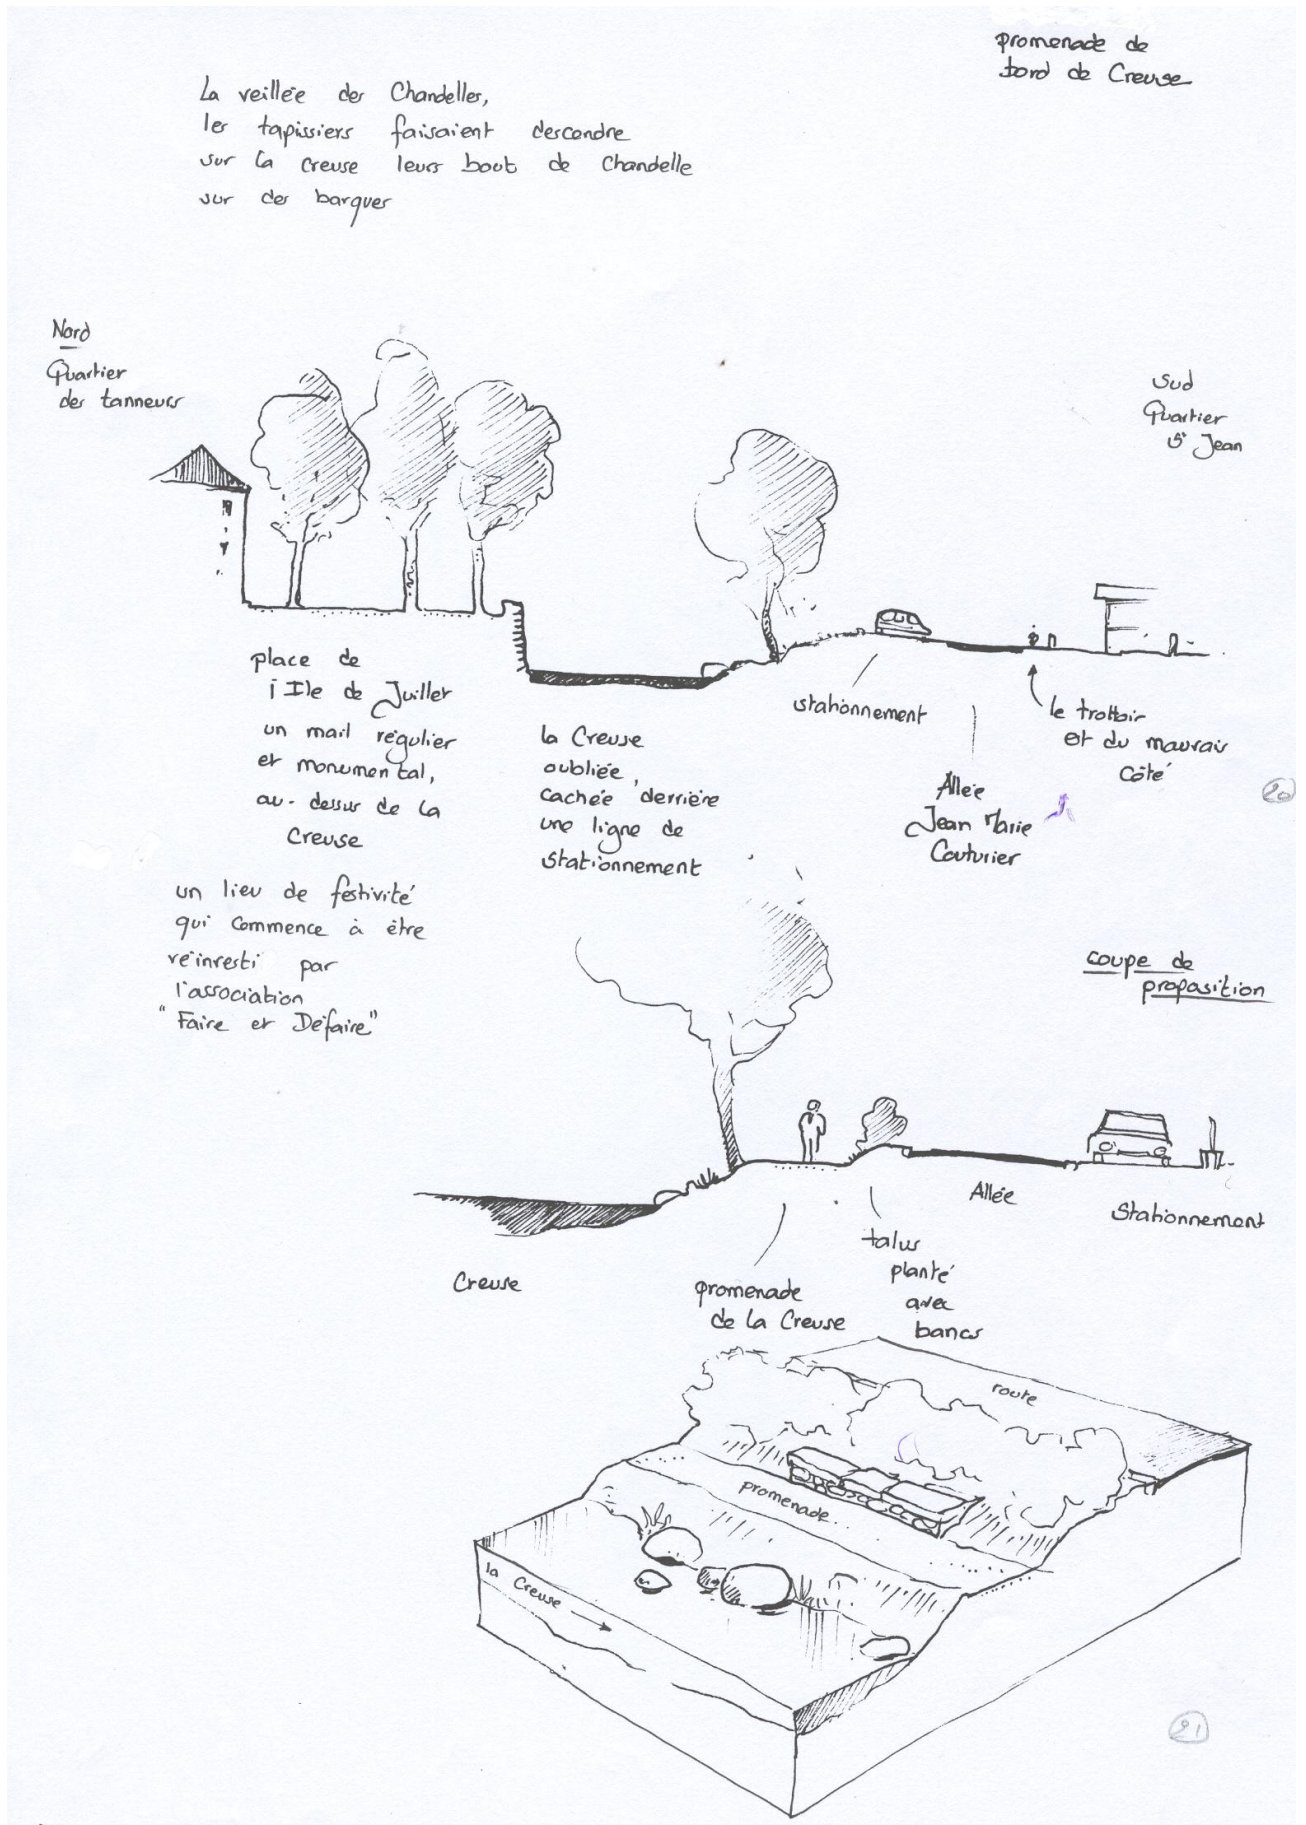 promenade de
bord de Creuse
La veillée des Chandelles,
les tapissiers faisaient descendre
sur la creuse leurs bout de Chandelle
sur des barques
Nord
Quartier
des tanneurs
Sud
Quartier
St Jean
place de
l'Ile de Juillet
un mail régulier
et monumental,
au-dessus de la
Creuse
un lieu de festivité
qui commence à être
réinvesti par
l'association
"Faire et Défaire"
la Creuse
oubliée,
cachée derrière
une ligne de
stationnement
stationnement
Allée
Jean Marie
Couturier
le trottoir
et du mauvais
côté
20
coupe de
proposition
Creuse
promenade
de la Creuse
talus
planté
avec
bancs
Allée
Stationnement
route
promenade
la Creuse
21